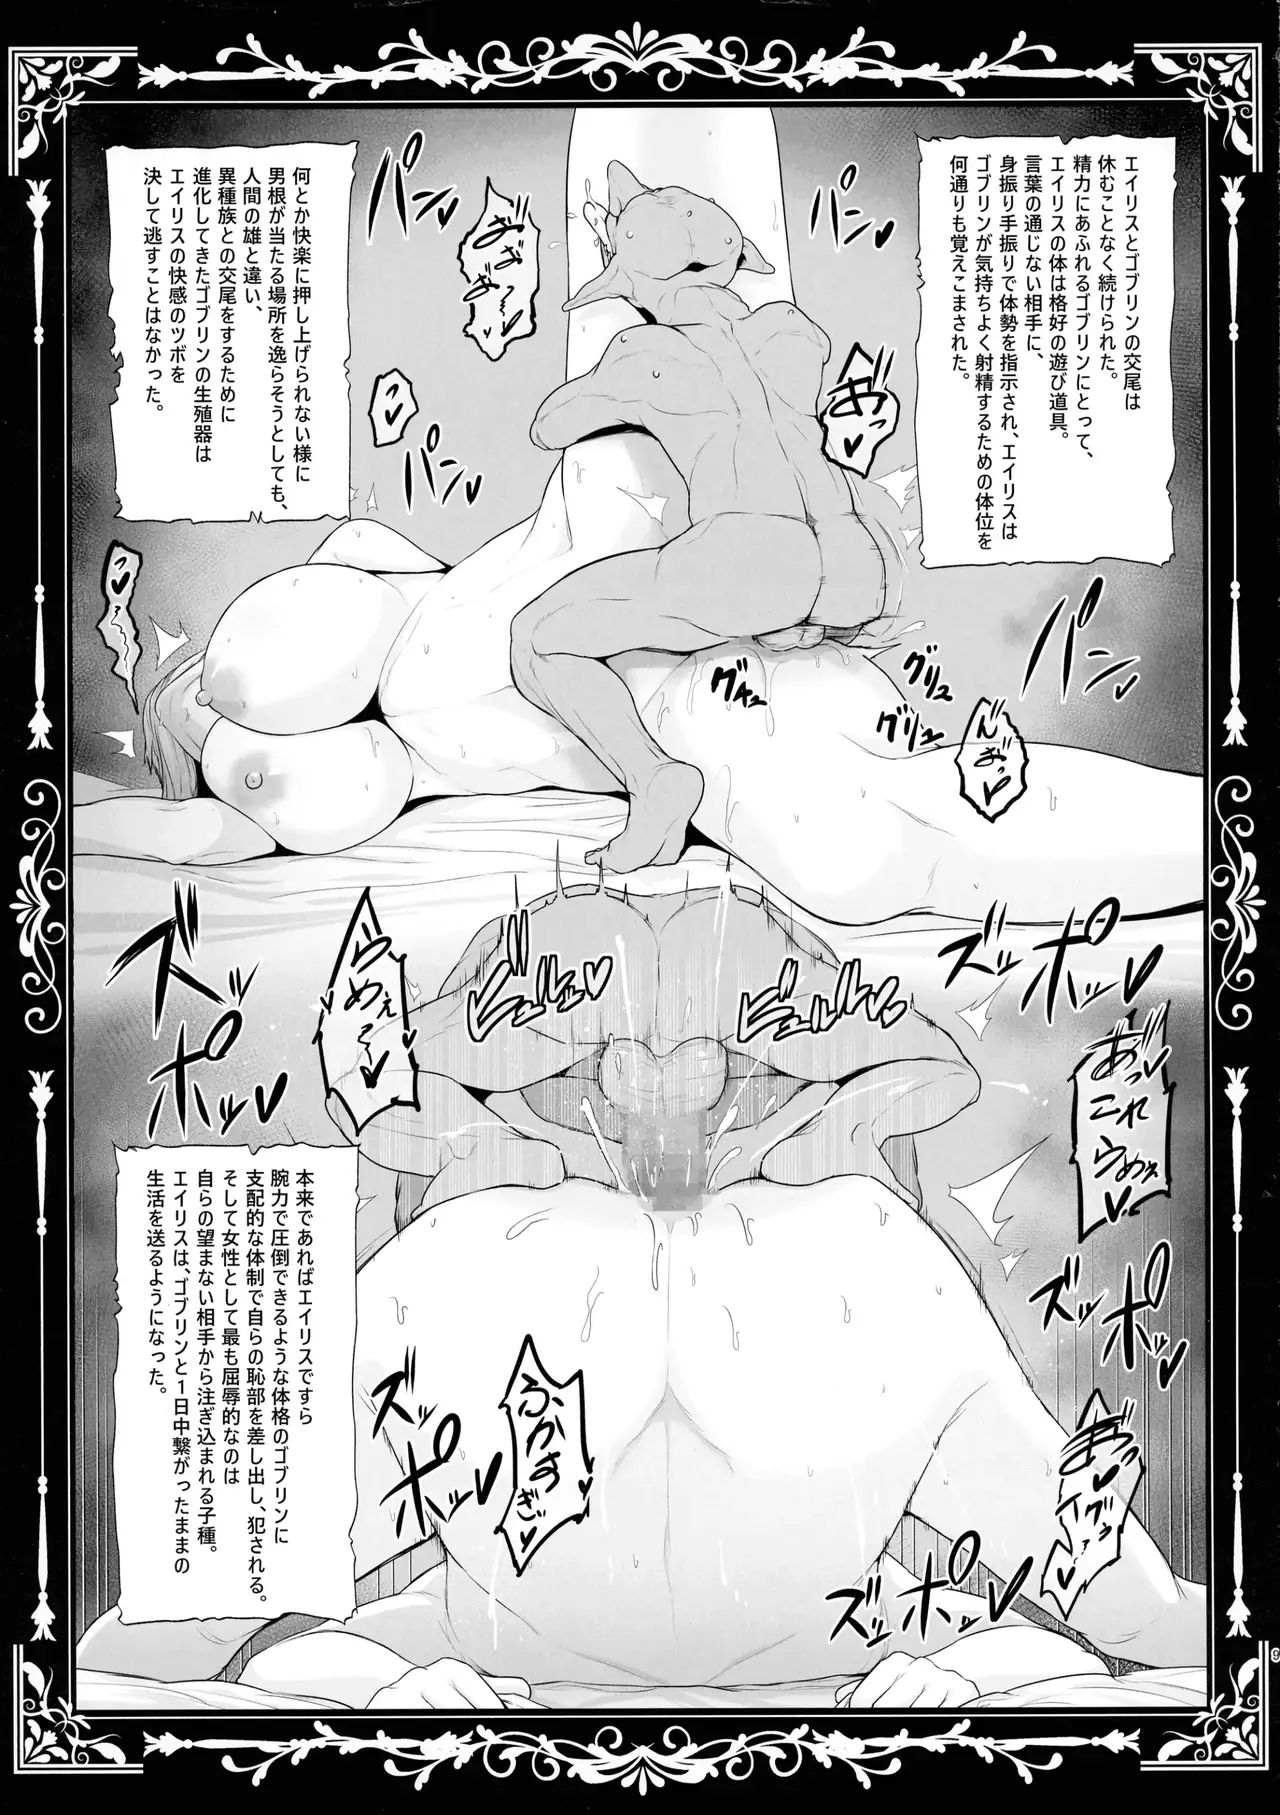 エイリスとゴブリンの交尾は
休むことなく続けられた。
精力にあふれるゴブリンにとって、
エイリスの体は格好の遊び道具。
言葉の通じない相手に、
身振り手振りで体勢を指示され、エイリスは
ゴブリンが気持ちよく射精するための体位を
何通りも覚えこまされた。
何とか快楽に押し上げられない様に
男根が当たる場所を逸らそうとしても、
人間の雄と違い、
異種族との交尾をするために
進化してきたゴブリンの生殖器は
エイリスの快感のツボを
決して逃すことはなかった。
パンッ
パンッ
パンッ
おっ♥
グチュ
グリュ
グリュ
んおっ♥
ズッ
ポッ♥
らめぇ〜
ビュルルッ♥
ビュルルルッ♥
ズッ
ポッ♥
あっ♥
これ
らめぇ♥
ズッ
ポッ♥
ズッ
ポッ♥
ふかす
ぎぃ♥
ズッ
ポッ♥
本来であればエイリスですら
腕力で圧倒できるような体格のゴブリンに
支配的な体制で自らの恥部を差し出し、犯される。
そして女性として最も屈辱的なのは
自らの望まない相手から注ぎ込まれる子種。
エイリスは、ゴブリンと1日中繋がったままの
生活を送るようになった。
9